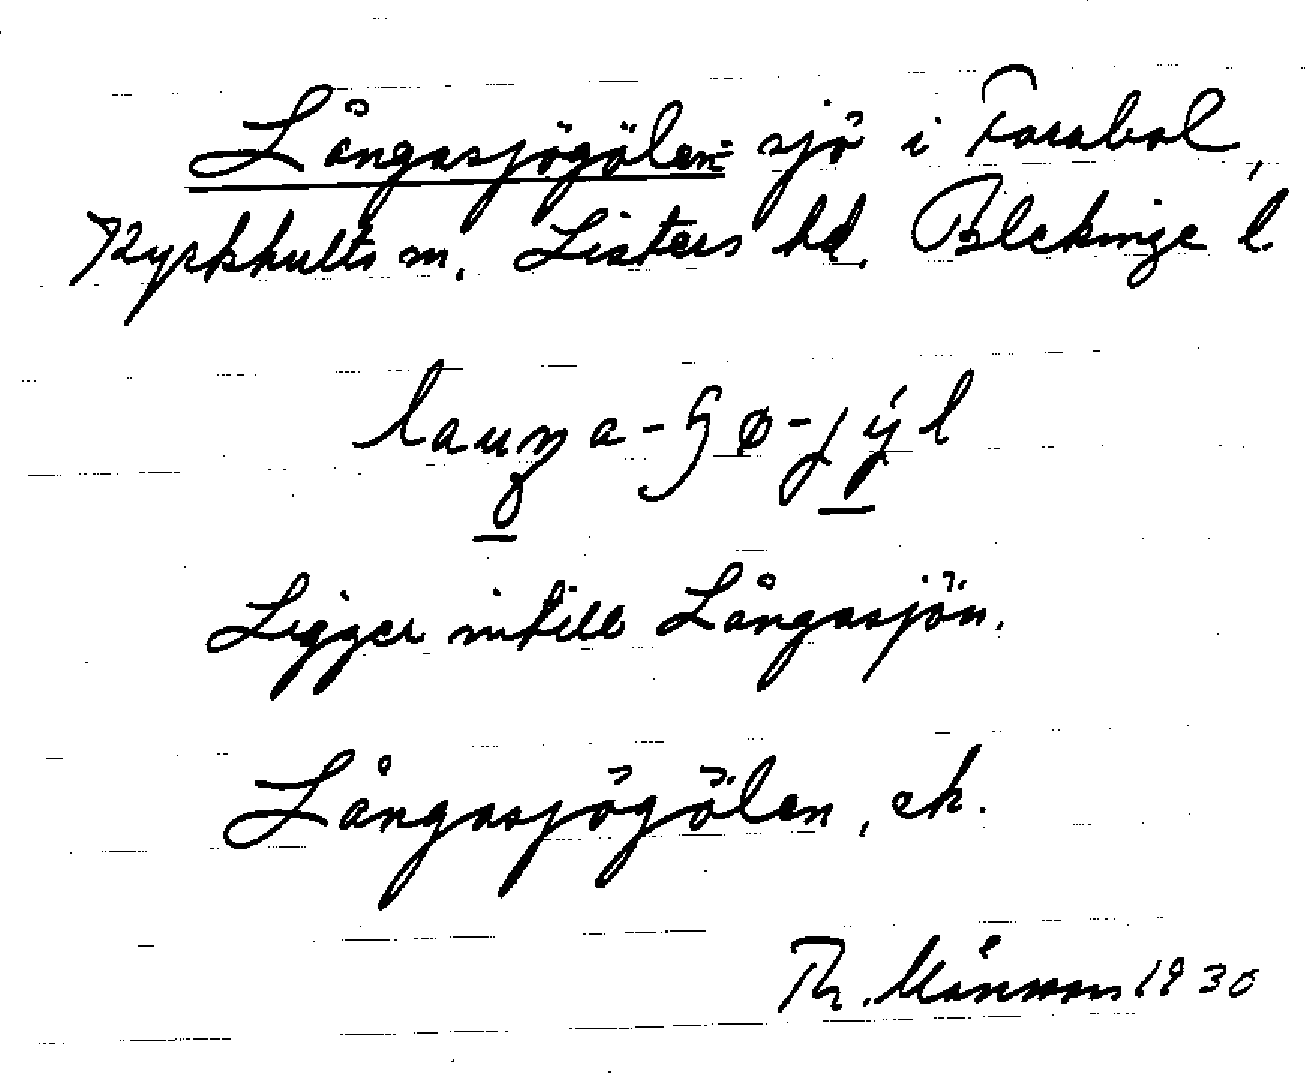 Långasjögölen: sjö i Farabol,
Kyrkhults sn. Listers hd. Blekinge l
Ligger intill Långasjön.
Långasjögölen, ek.
Th. Månsson 1930